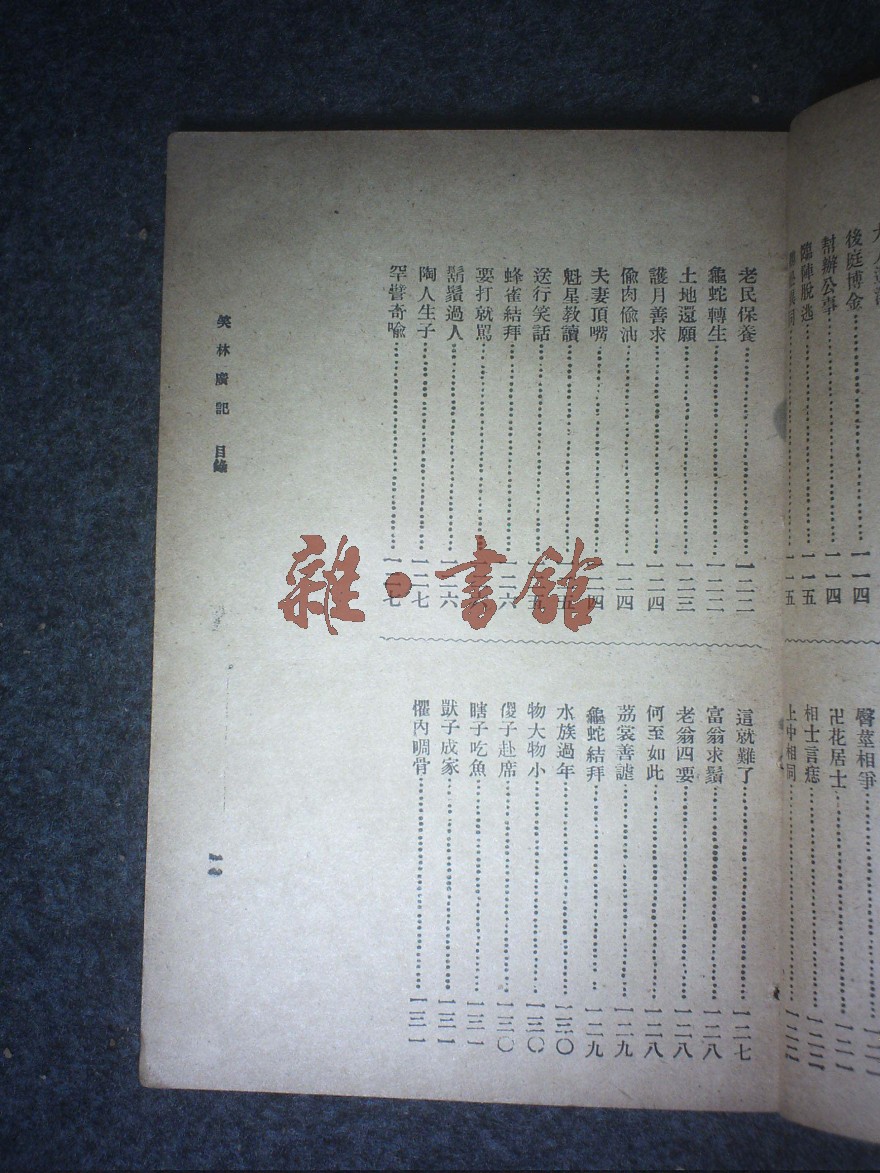 後庭博金
一一四
幫辦公事
一一四
臨陣脫逃
一一五
一一五
臀莖相爭
卍花居士
一二一
相士言痣
一二二
上中相同
一二二
老民保養
一二二
龜蛇轉生
一二二
土地還願
一二三
護月善求
一二四
偷肉偷油
一二四
夫妻頂嘴
魁星教讀
送行笑話
蜂雀結拜
一二六
要打就罵
鬍鬚過人
一二六
陶人生子
一二七
罕譬奇喩
一二七
這就難了
一二七
富翁求鬚
一二八
老翁四要
一二八
何至如此
一二八
荔裳善謔
一二九
龜蛇結拜
一二九
水族過年
一三〇
物大物小
一三〇
傻子赴席
一三〇
瞎子吃魚
一三一
獃子成家
一三一
懼內啁骨
一三一
笑林廣記 目錄
雜·書館